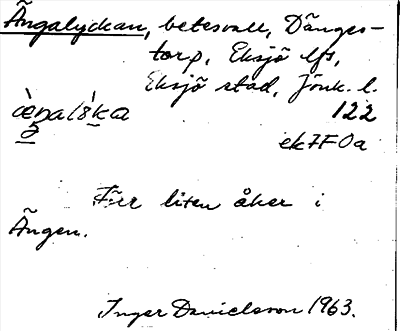 Ängalyckan, betesvall, Dänges-
torp, Eksjö lfs,
Eksjö stad, Jönk. l.
122
ek7F0a
Förr liten åker i
Ängen.
Inger Danielsson 1963.